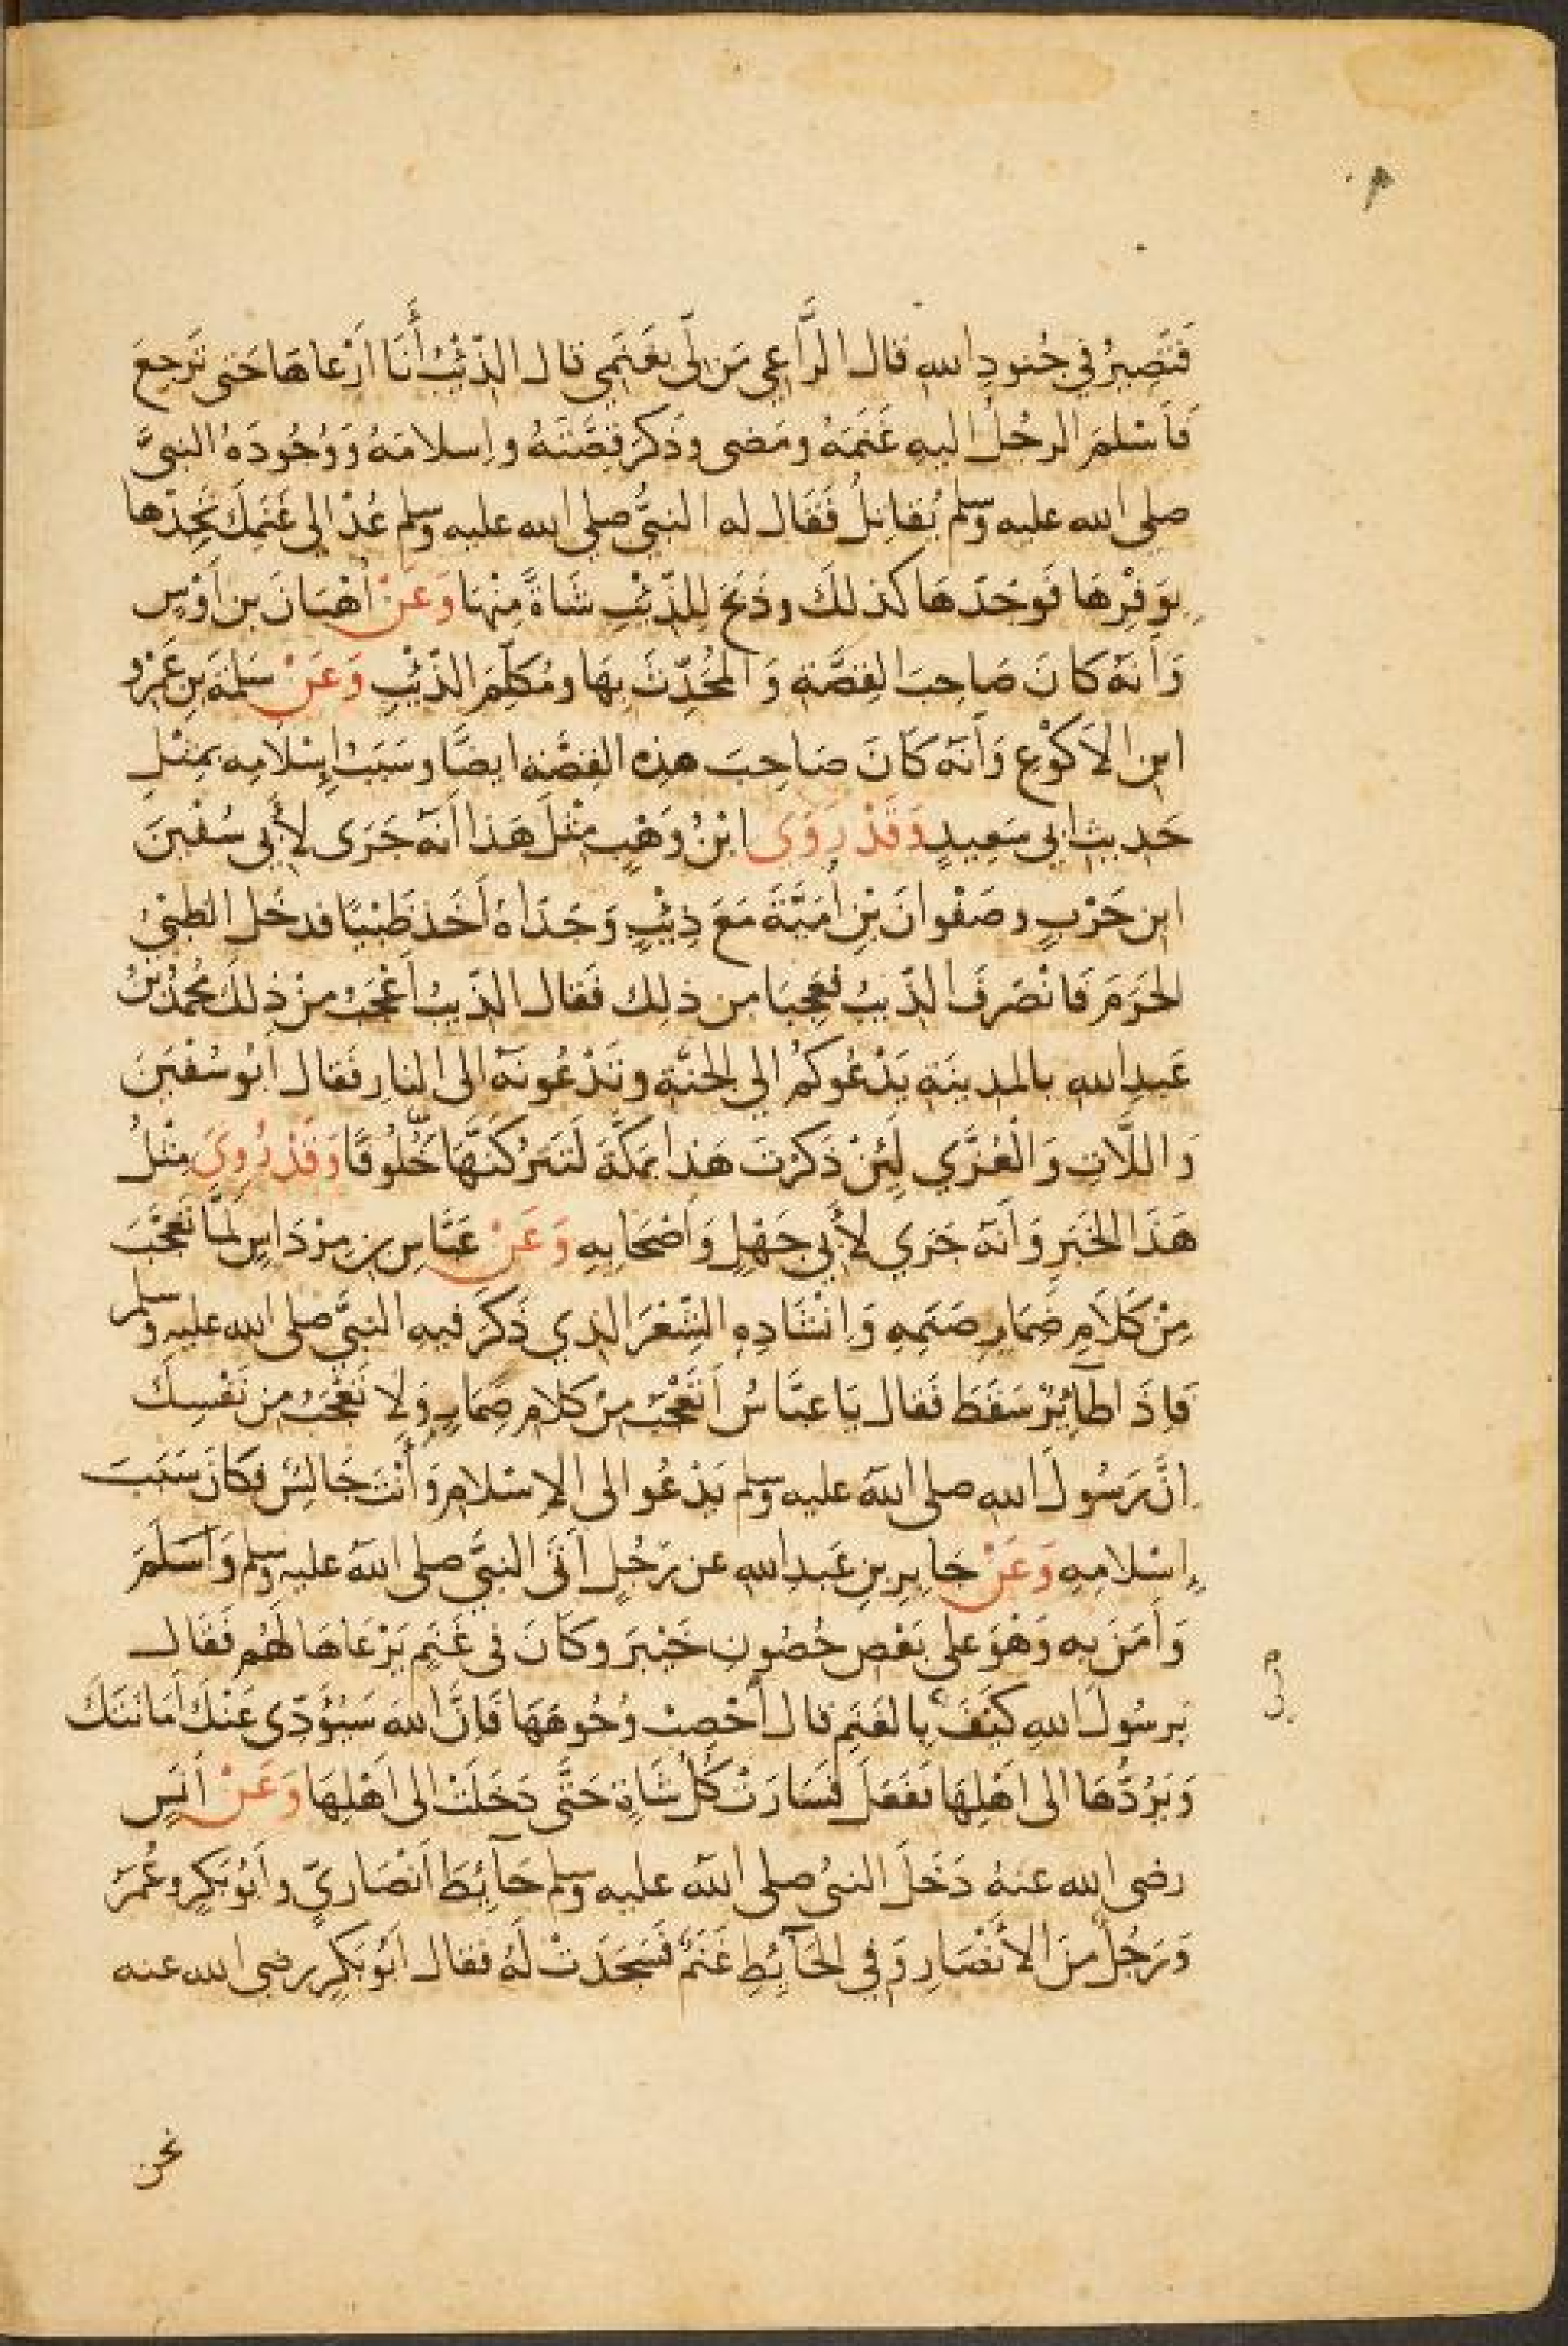 فَتَصِيرُ في جُنودِ الله قال الرَّاعِي مَن لي بغَنَمِي قال الذّئْبُ أَنَا ارْعاهَا حَتى تَرجِعَ
فَأَسْلمَ الرجُلُ اليهِ غَنَمَهُ ومَضى وذَكَرَ قِصَّتَهُ واِسلامَهُ وَوُجُودَهُ النبيَّ
صلى الله عليه وسلم يُقاتِلُ فَقَال له النبيُّ صلى الله عليه وسلم عُدْ الى غَنَمِكَ تَجِدْها
بِوَفْرِهَا فَوجَدَهَا كذلكَ وذَبَحَ لِلذّئْبِ شَاةً مِنْهَا وَعَنْ اُهْبَانَ بن اَوْسٍ
وَأَنهُ كانَ صَاحِبَ القِصَّةِ وَالمُحَدِّثَ بِهَا ومُكلّمَ الذّئْبِ وَعَنْ سَلَمَةَ بنِ عَمْرِو
ابن الاَكوَعِ وَأَنهُ كَانَ صَاحِبَ هذِه القِصَّةِ ايضًا وسَبَبُ إِسْلَامِه بِمِثْلِ
حَديثِ ابي سَعِيدٍ وَقَدْ رَوَى ابْنُ وَهْبٍ مِثْلَ هَذا اَنهُ جَرَى لِأَبي سُفْيَنَ
ابن حَرْبٍ وصَفْوانَ بْنِ أُمَيَّةَ مَعَ ذِئْبٍ وَجَدَاهُ أَخَذَ ظَبْيًا فدخَل الظبْيُ
الحَرَمَ فَانْصَرفَ الذّيبُ فَعَجِبَا مِن ذلك فَقال الذّيبُ أَعْجَبُ مِنْ ذلكَ مُحَمّدُ بْنُ
عَبدِ الله بالمدينَةِ يَدْعُوكُمْ الى الجَنّةِ وتَدْعُونَهُ الى النار فَقال اَبُو سُفْيَنَ
وَاللَّاتِ وَالْعُزَّي لَئِنْ ذَكَرْتَ هَذا بمَكّةَ لَتَتْرُكَنَّهَا خُلُوفًا وَقَدْ رُوِيَ مِثْلُ
هَذَا الخَبَرِ وَأَنهُ جَرَي لِأَبي جَهْلٍ وَاَصْحَابِهِ وَعَنْ عَبَّاسِ بنِ مِرْدَاسٍ لَمّا تَعَجَّبَ
مِنْ كَلَامِ ضِمَارِ صَنَمِهِ وَاِنْشَادِهِ الشِّعْرَ الذي ذَكَرَ فيهِ النبيَّ صلى الله عليه وسلم
فَاِذَا طَآئِرٌ سَقَطَ فَقال يَا عبَّاسُ أَتَعْجَبُ مِنْ كلامِ ضِمَارٍ وَلا تَعْجَبُ مِن نَفْسِكَ
اِنَّ رَسُولَ الله صلى الله عليه وسلم يَدْعُو الى الاِسْلامِ وَأَنْتَ جَالِسٌ فَكانَ سَبَبَ
اِسْلامِهِ وَعَنْ جَابِرِ بنِ عَبدِ الله عن رَجُلٍ أَتَى النبيَّ صلى الله عليه وسلم وَأَسلَمَ
وَأَمَنَ بِه وَهْوَ على بَعْضِ حُصُونِ خَيْبَرَ وكَانَ في غَنَمٍ يَرْعَاهَا لَهُم فَقَال
يَرسُولَ اللهِ كَيْفَ بالغَنَمِ قال أَحْصِبْ وُجُوهَهَا فَاِنَّ اللهَ سَيُؤَدّي عَنْكَ أَمَانَتَكَ
وَيَرُدُّهَا الى اَهْلِهَا فَفَعَلَ فَسَارَتْ كُلُّ شَاةٍ حَتّى دَخَلَتْ الى اَهْلِهَا وَعَنْ أَنَسٍ
رضى الله عنهُ دَخَلَ النبىُ صلى الله عليه وسلم حَآئِطَ اَنْصَارِيٍّ وأَبُو بَكرٍ وعُمَرُ
وَرَجُلٌ مِنَ الاَنْصَارِ وَفي الحَآئِطِ غَنَمٌ فَسَجَدَتْ لَهُ فقال اَبُو بَكرٍ رضى الله عنه
نحن